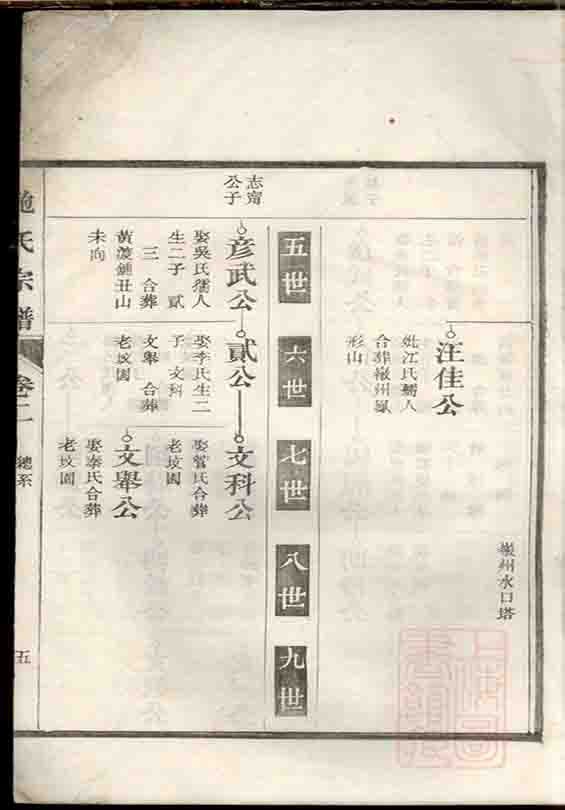 嶺州水口塔
汪佳公
妣江氏孺人
合葬嶺州鳳
形山
五世
六世
七世
八世
九世
志齋
公子
彦武公
娶吳氏孺人
生二子 貳
三 合葬
黃荳鋪丑山
未向
貳公
娶李氏生二
子 文科
文舉 合葬
老坟園
文科公
娶菅氏合葬
老坟園
文舉公
娶秦氏合葬
老坟園
施氏宗譜
卷二
總系
五